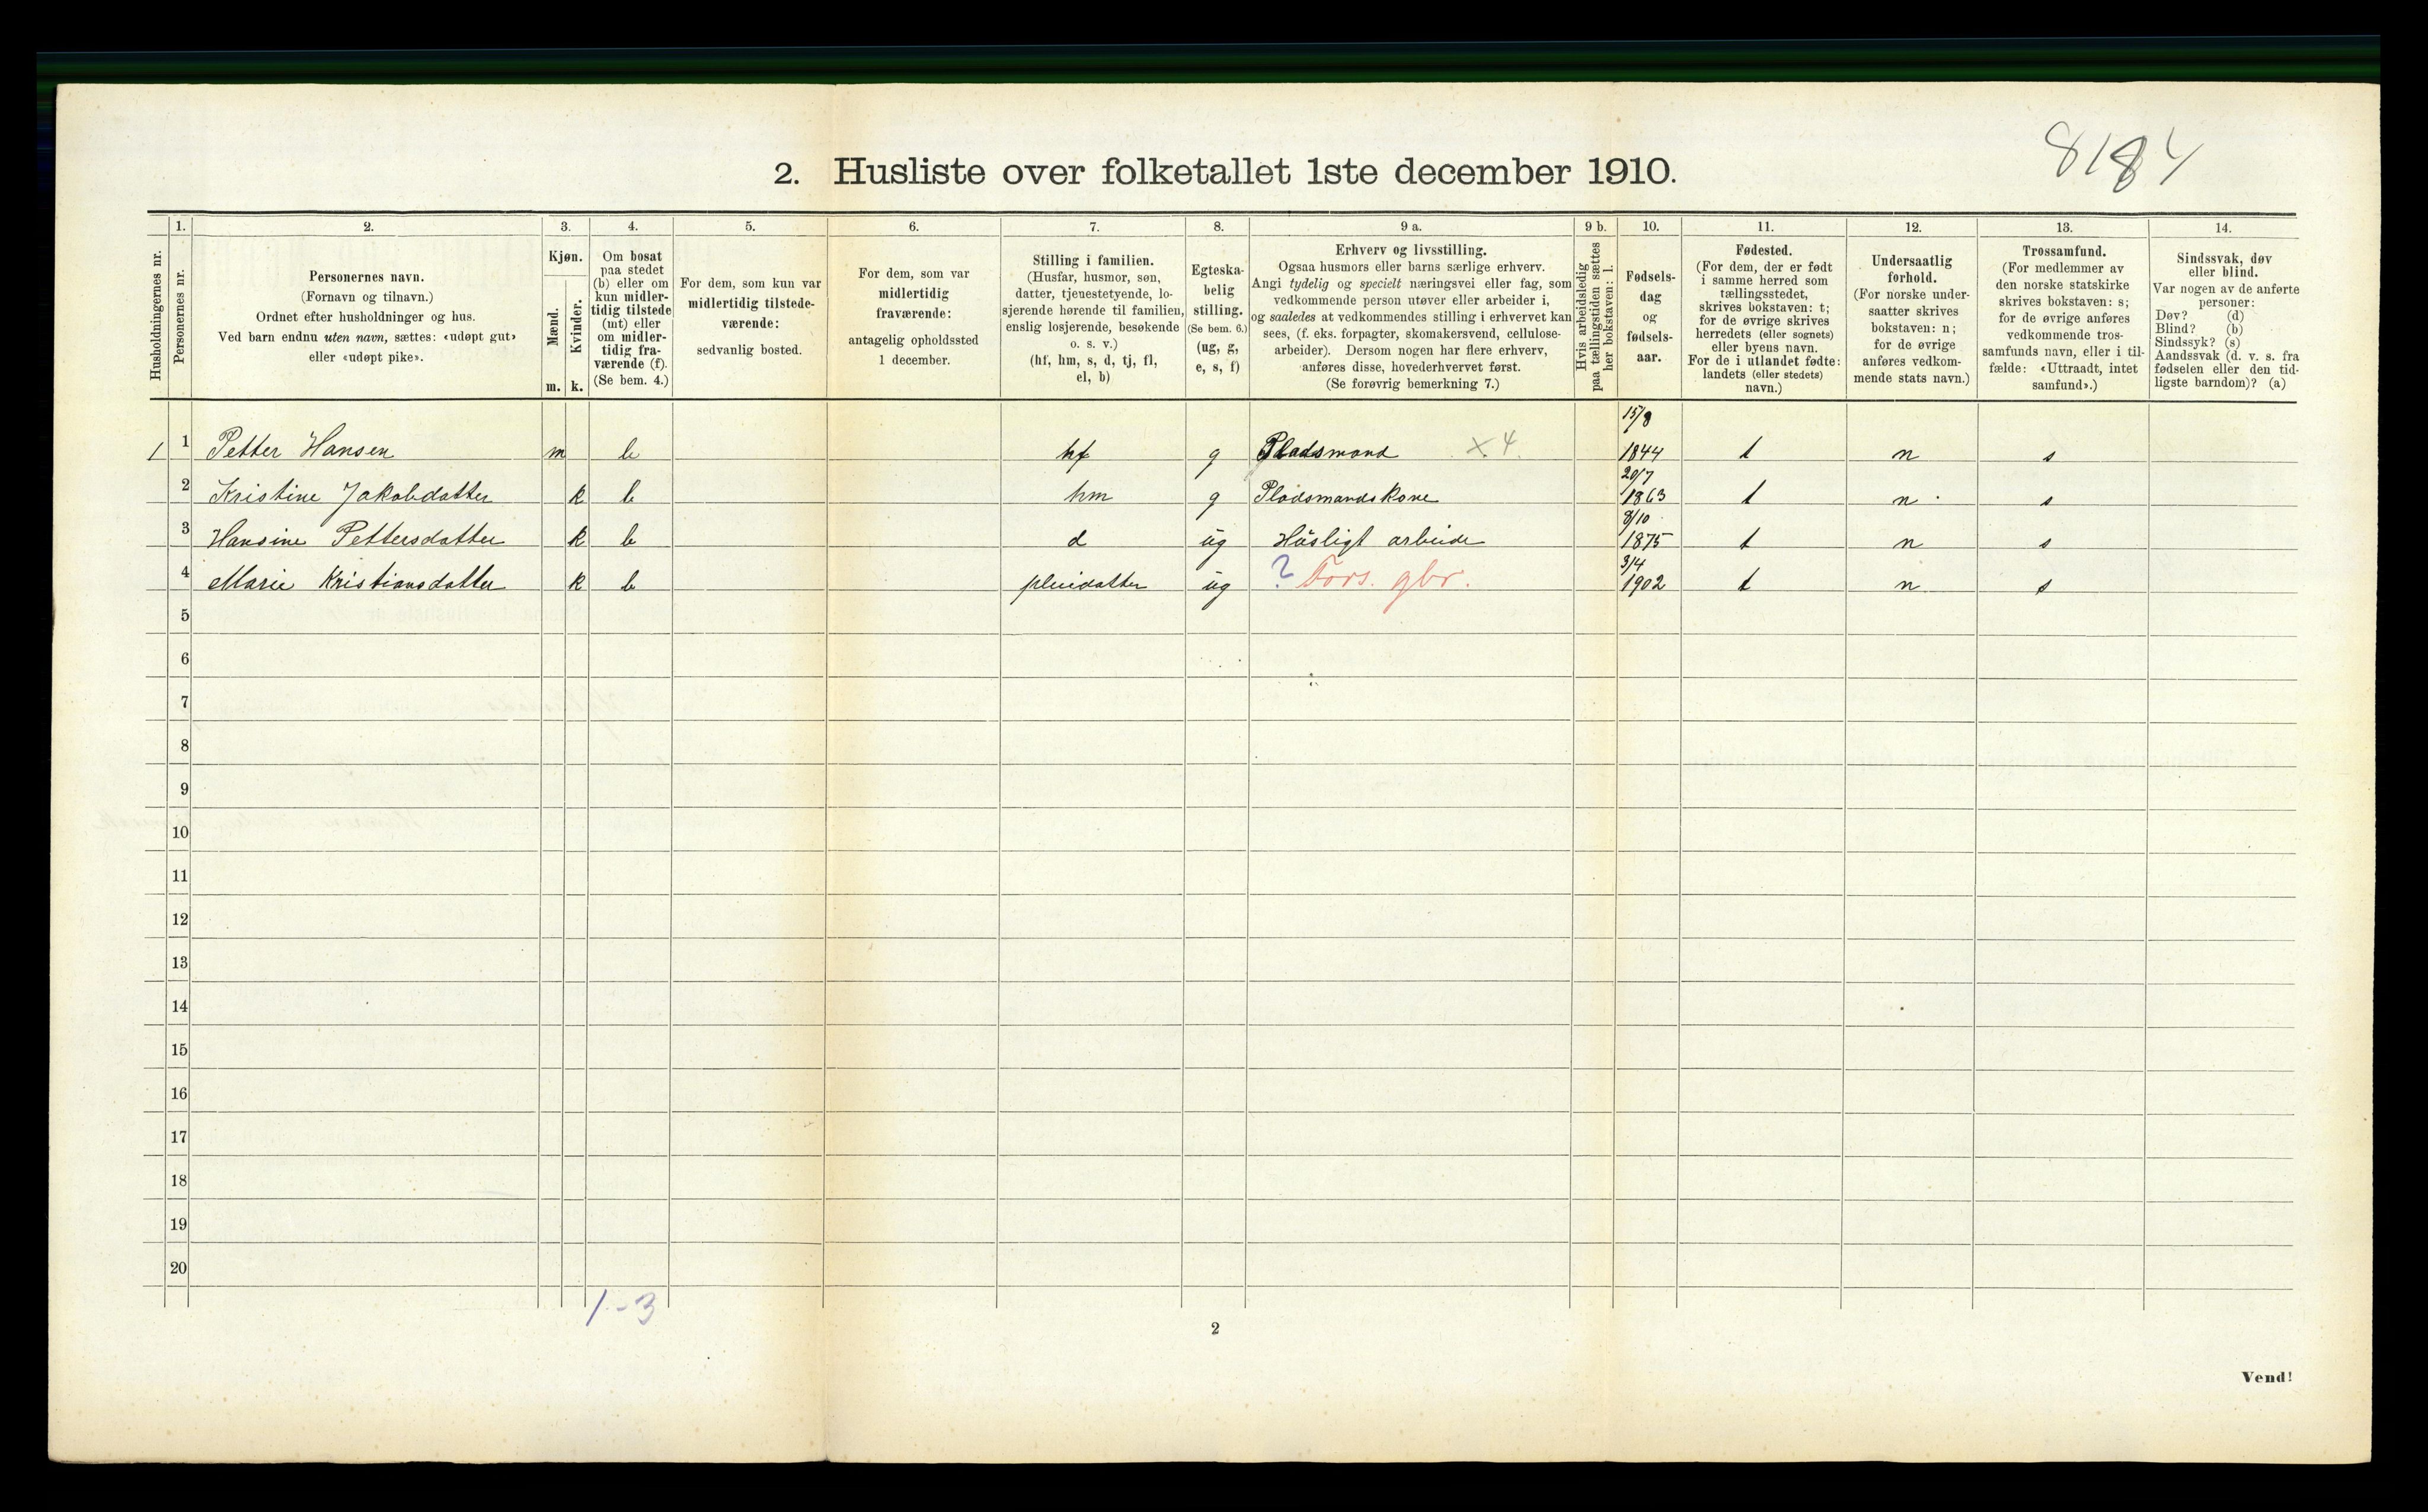 8184
2. Husliste over folketallet 1ste december 1910.
Husholdningernes nr.
1.
Personernes nr.
2.
Personernes navn.
(Fornavn og tilnavn.)
Ordnet efter husholdninger og hus.
Ved barn endnu uten navn, sættes: «udøpt gut»
eller «udøpt pike».
3.
Kjøn.
Mænd.
m.
Kvinder.
k.
4.
Om bosat
paa stedet
(b) eller om
kun midler-
tidig tilstede
(mt) eller
om midler-
tidig fra-
værende (f).
(Se bem. 4.)
5.
For dem, som kun var
midlertidig tilstede-
værende:
sedvanlig bosted.
6.
For dem, som var
midlertidig
fraværende:
antagelig opholdssted
1 december.
7.
Stilling i familien.
(Husfar, husmor, søn,
datter, tjenestetyende, lo-
sjerende hørende til familien,
enslig losjerende, besøkende
o. s. v.)
(hf, hm, s, d, tj, fl,
el, b)
8.
Egteska-
belig
stilling.
(Se bem. 6.)
(ug, g,
e, s, f)
9 a.
Erhverv og livsstilling.
Ogsaa husmors eller barns særlige erhverv.
Angi tydelig og specielt næringsvei eller fag, som
vedkommende person utøver eller arbeider i,
og saaledes at vedkommendes stilling i erhvervet kan
sees, (f. eks. forpagter, skomakersvend, cellulose-
arbeider). Dersom nogen har flere erhverv,
anføres disse, hovederhvervet først.
(Se forøvrig bemerkning 7.)
9 b.
Hvis arbeidsledig
paa tællingstiden sættes
her bokstaven: l.
10.
Fødsels-
dag
og
fødsels-
aar.
11.
Fødested.
(For dem, der er født
i samme herred som
tællingsstedet,
skrives bokstaven: t;
for de øvrige skrives
herredets (eller sognets)
eller byens navn.
For de i utlandet fødte:
landets (eller stedets)
navn.)
12.
Undersaatlig
forhold.
(For norske under-
saatter skrives
bokstaven: n;
for de øvrige
anføres vedkom-
mende stats navn.)
13.
Trossamfund.
(For medlemmer av
den norske statskirke
skrives bokstaven: s;
for de øvrige anføres
vedkommende tros-
samfunds navn, eller i til-
fælde: «Uttraadt, intet
samfund».)
14.
Sindssvak, døv
eller blind.
Var nogen av de anførte
personer:
Døv? (d)
Blind? (b)
Sindssyk? (s)
Aandssvak (d. v. s. fra
fødselen eller den tid-
ligste barndom)? (a)
1 1 Petter Hansen m b hf g Pladsmand X 4. 15/8 1844 t n s
2 Kristine Jakobdatter k b hm g Pladsmandskone 20/7 1863 t n s
3 Hansine Pettersdatter k b d ug Husligt arbeide 8/10 1875 t n s
4 Marie Kristiansdatter k b pleiedatter ug ? Fors. gbr. 3/4 1902 t n s
5
6
7
8
9
10
11
12
13
14
15
16
17
18
19
20
1-3
2
Vend!